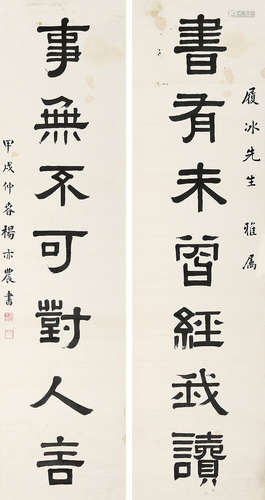 書有未曾經我讀
履冰先生 雅属
事無不可對人言
甲戌仲春楊亦農書